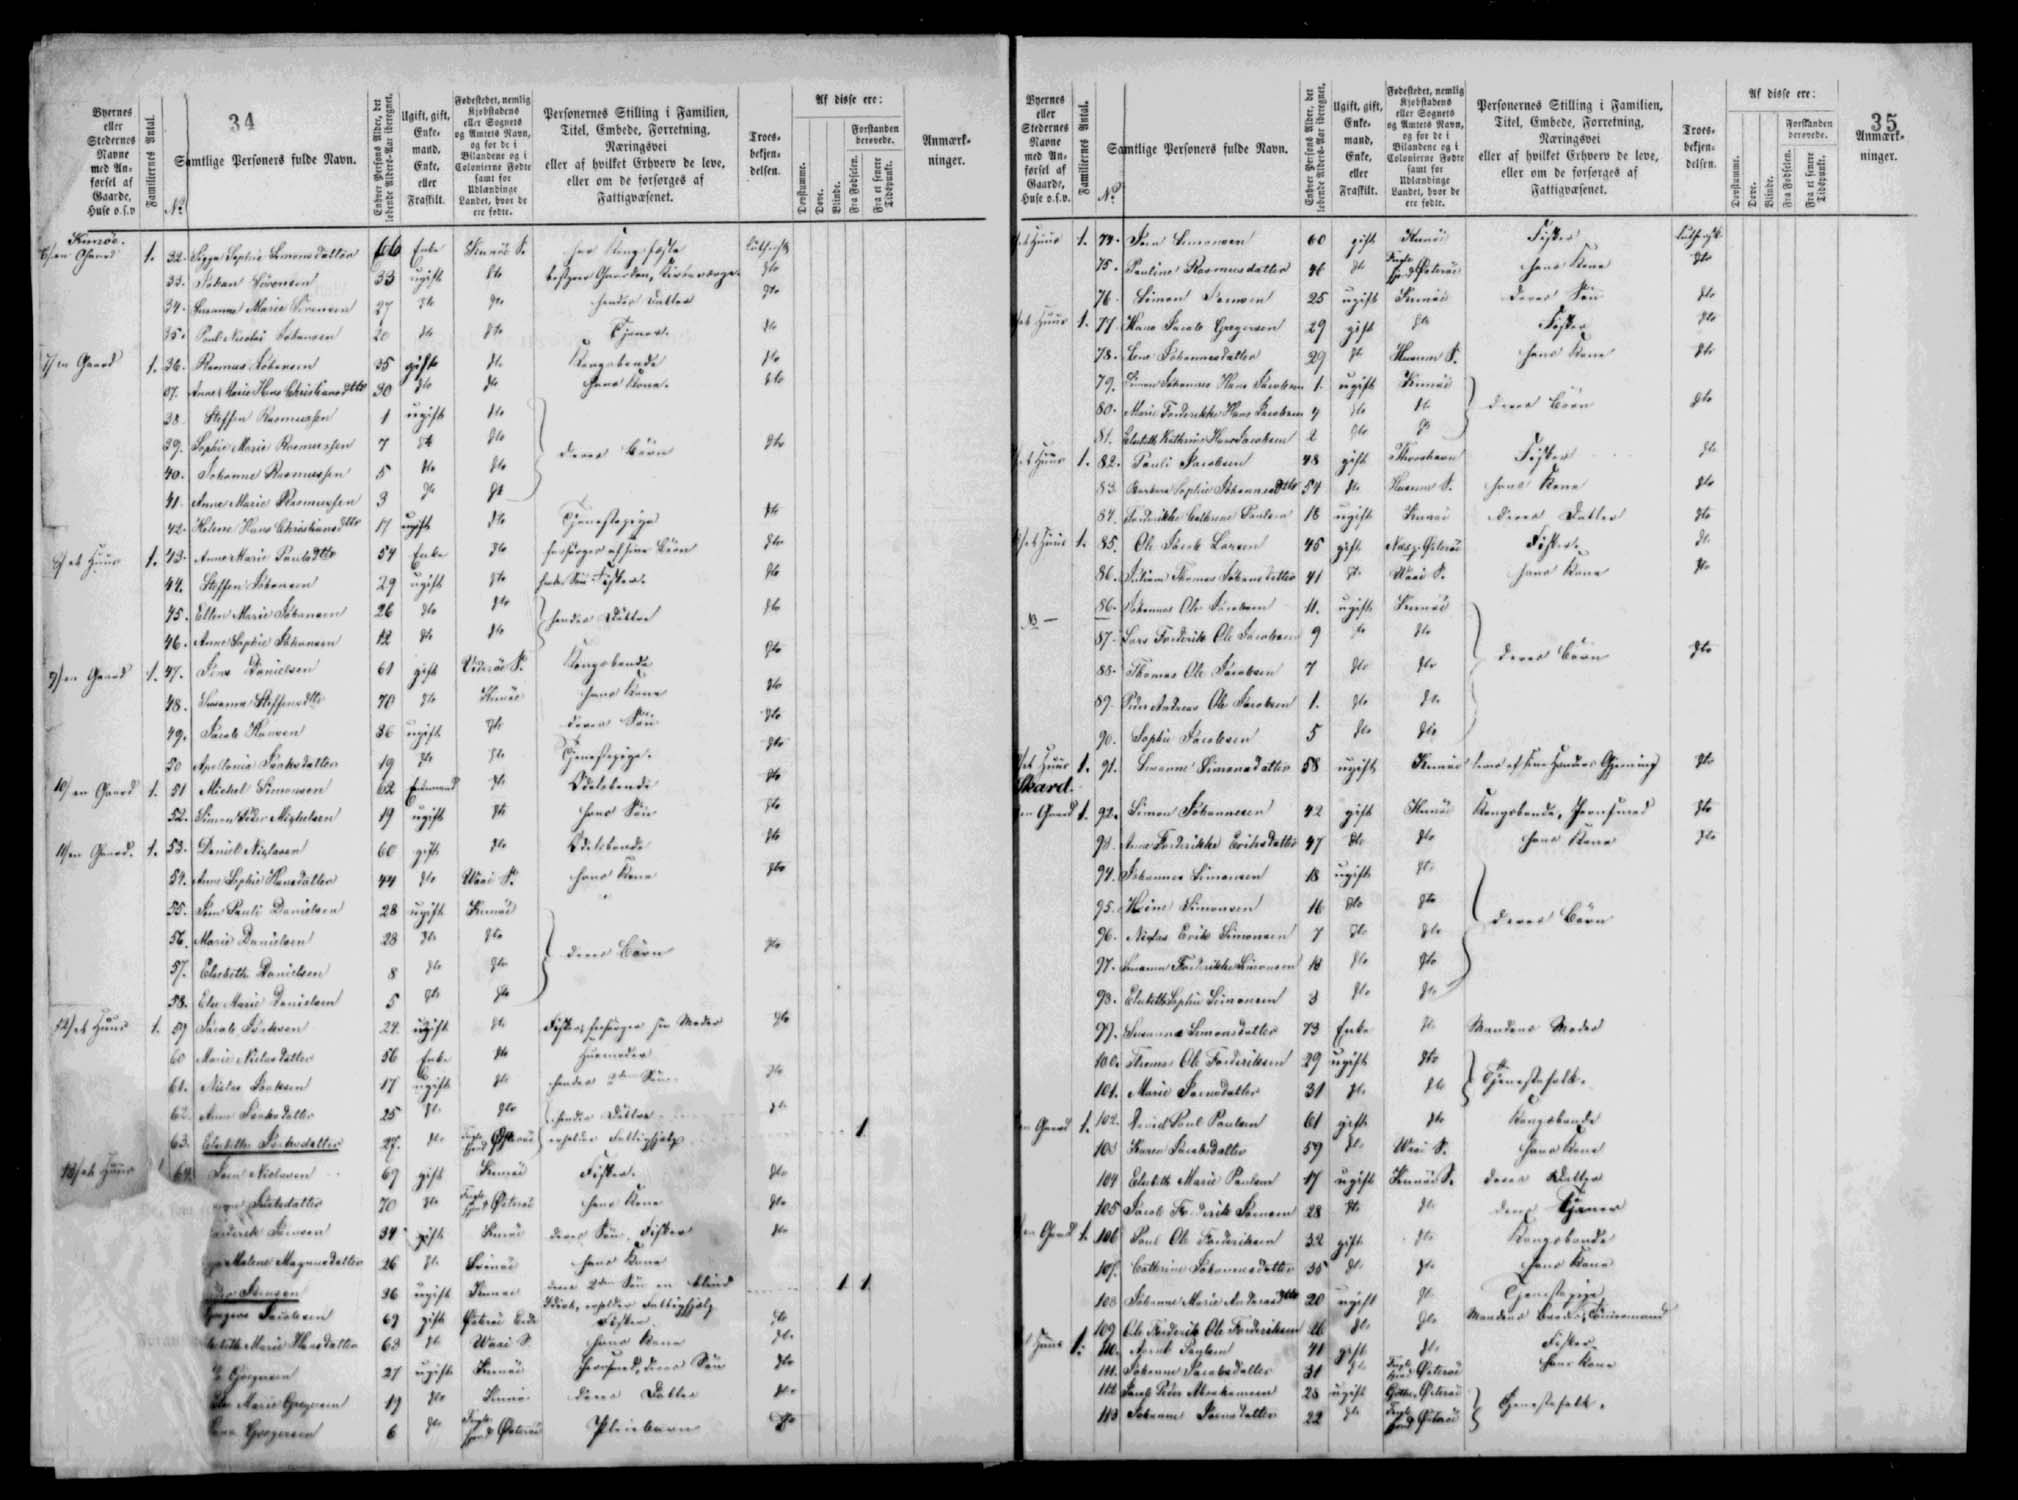 34
Byernes eller Stedernes Navne med Anførsel af Gaarde, Huse o.s.v
Familiernes Antal.
No
Samtlige Personers fulde Navn.
Enhver Persons Alder, det løbende Alders-Aar iberegnet.
Ugift, gift, Enkemand, Enke, eller Fraskilt.
Fødestedet, nemlig Kjøbstadens eller Sognets og Amtets Navn, og for de i Bilandene og i Colonierne Fødte samt for Udlændinge Landet, hvor de ere fødte.
Personernes Stilling i Familien, Titel, Embede, Forretning, Næringsvei eller af hvilket Erhverv de leve, eller om de forsørges af Fattigvæsenet.
Troesbekjendelsen.
Af disse ere:
Døvstumme.
Døve.
Blinde.
Forstanden berøvede.
Fra Fødselen.
Fra et senere Tidspunkt.
Anmærkninger.
Kunøe.
en Gaard 1. 32. Sophie Simonsdatter 66 Enke Kunöe S.
33. Johan Sörensen 33 ugift dto dto
34. Susanna Marie Sörensen 27 dto dto hendes Datter dto
35. Poul Nicolai Johansen 20 dto dto Tjener. dto
7) en Gaard 1. 36. Rasmus Johansen 35 gift dto Kongsbonde dto
37. Anne Marie Hans Christiansdtter 30 dto dto hans Kone. dto
38. Steffen Rasmussen 1 ugift dto
39. Sophie Marie Rasmussen 7 dto dto deres Börn dto
40. Johanne Rasmussen 5 dto dto
41. Anne Marie Rasmussen 3 dto dto
42. Helene Hans Christiansdtter 17 ugift dto Tjenestepige dto
8) et Huus 1. 43. Anne Marie Poulsdtter 54 Enke dto forsörges af sine Börn dto
44. Steffen Johansen 29 ugift dto Fisker. dto
45. Ellen Marie Johansen 26 dto dto hendes Döttre dto
46. Anne Sophie Johansen 12 dto dto
9) en Gaard 1. 47. Jens Danielsen 61 gift Viderøe S. Kongsbonde dto
48. Susanna Steffensdtter 70 dto Kunöe hans Kone dto
49. Jacob Hansen 36 ugift dto deres Sön dto
50 Apollonia Isaksdatter 19 dto dto Tjenestepige. dto
10) en Gaard 1. 51 Michel Simonsen 62 Enkemand dto Odelsbonde dto
52. Simon Peder Michelsen 19 ugift dto hans Sön dto
11) en Gaard. 1. 53. Daniel Niclasen 60 gift dto Odelsbonde dto
54. Anne Sophie Hansdatter 44 dto Waai S. hans Kone dto
55. Jens Pauli Danielsen 28 ugift Kunöe
56. Marie Danielsen 23 dto dto deres Börn dto
57. Elsebeth Danielsen 8 dto dto
58. Else Marie Danielsen 5 dto dto
12) et Huus 1. 59 Jacob Isaksen 24. ugift dto Fisker, forsörger sin Moder dto
60 Marie Niclasdatter 56 Enke dto Huusmoder
61. Niclas Isaksen 17 ugift dto hendes 2den Sön dto
62. Anne Isaksdatter 25 dto dto hendes Döttre dto
63. Elsebeth Isaksdatter 27. dto Østerøe nyder Fattighjælp 1
13) et Huus 1 64. Jens Niclasen 69 gift Kunöe Fisker. dto
datter 70 dto Østerøe hans Kone dto
Frederik Jensen 34 gift Kunöe deres Sön, Fisker dto
Malene Magnusdatter 26 dto Svinøe hans Kone
Jensen 36 ugift Kunöe deres 2den Sön en blind Idiot, nyder Fattighjælp 1 1
Jacobsen 69 gift Østerøe Fisker dto
Marie Hansdatter 63 dto Waai S. hans Kone dto
Gregersen 27 ugift Kunöe deres Sön dto
Marie Gregersen 19 dto Kunöe deres Datter dto
Gregersen 6 dto Østerøe Pleiebarn dto
35
Byernes eller Stedernes Navne med Anførsel af Gaarde, Huse o.s.v.
Familiernes Antal.
No
Samtlige Personers fulde Navn.
Enhver Persons Alder, det løbende Alders-Aar iberegnet.
Ugift, gift, Enkemand, Enke, eller Fraskilt.
Fødestedet, nemlig Kjøbstadens eller Sognets og Amtets Navn, og for de i Bilandene og i Colonierne Fødte samt for Udlændinge Landet, hvor de ere fødte.
Personernes Stilling i Familien, Titel, Embede, Forretning, Næringsvei eller af hvilket Erhverv de leve, eller om de forsørges af Fattigvæsenet.
Troesbekjendelsen.
Af disse ere:
Døvstumme.
Døve.
Blinde.
Forstanden berøvede.
Fra Fødselen.
Fra et senere Tidspunkt.
Anmærkninger.
et Huus 1. 74. Jens Simonsen 60 gift Kunöe Fisker
75. Pauline Rasmusdatter 46 dto Østerøe hans Kone dto
76. Simon Jensen 25 ugift Kunöe deres Sön dto
et Huus 1. 77. Hans Jacob Gregersen 29 gift dto Fisker dto
78. Johannesdatter 29 dto Husum S. hans Kone dto
79. Simon Johannes Hans Jacobsen 1. ugift Kunöe
80. Marie Frederikke Hans Jacobsen 4 dto dto deres Börn dto
81. Elsebeth Kathrine Hans Jacobsen 2 dto dto
et Huus 1. 82. Pauli Jacobsen 48 gift Thorshavn Fisker dto
83. Barbara Sophie Johannesdtter 54 dto Husum S. hans Kone dto
84. Frederikke Cathrine Paulsen 18 ugift Kunöe deres Datter dto
et Huus 1. 85. Ole Jacob Larsen 45 gift Østerøe Fisker. dto
86. Thomas Johansdatter 41 dto Waai S. hans Kone dto
86. Johannes Ole Jacobsen 11. ugift Kunöe
87. Lars Frederik Ole Jacobsen 9 dto dto
88. Thomas Ole Jacobsen 7 dto dto deres Börn dto
89. Peder Andreas Ole Jacobsen 1. dto dto
90. Sophie Jacobsen 5 dto dto
et Huus 1. 91. Susanne Simonsdatter 58 ugift Kunöe lever af sine Hænders Gjerning dto
Skard.
en Gaard 1. 92. Simon Johannesen 42 gift Kunöe Kongsbonde, dto
93. Anne Frederikke Eriksdatter 47 dto dto hans Kone dto
94. Johannes Simonsen 18 ugift dto
95. Simonsen 16 dto dto deres Börn
96. Niclas Erik Simonsen 7 dto dto
97. Susanne Frederikke Simonsen 13 dto dto
98. Elsebeth Sophie Simonsen 3 dto dto
99. Susanna Simonsdatter 73 Enke dto Mandens Moder
100. Thomas Ole Frederiksen 29 ugift dto Tjenestefolk.
101. Marie Joensdatter 31 dto dto
en Gaard 1. 102. Poul Poulsen 61 gift dto Kongsbonde
103 Karen Jacobsdatter 59 dto Waai S. hans Kone
104 Elsebeth Marie Paulsen 17 ugift Kunöe S. deres Datter
105 Jacob Frederik Joensen 28 dto dto deres Tjener
en Gaard 1. 106 Poul Ole Frederiksen 32 gift dto Kongsbonde
107. Cathrine Johannesdatter 35 dto dto hans Kone
108 Johanne Marie Andreasdtter 20 ugift dto Tjenestepige
109 Ole Frederik Ole Frederiksen 26 dto dto Mandens Broder, Tömmermand
Huus 1. 110. 41 gift dto Fisker.
111. Johanne Jacobsdatter 31 dto Østerøe hans Kone
112 Jacob Peder Abrahamsen 28 ugift Østerøe Tjenestefolk.
113 Johanne Joensdatter 22 dto Østerøe